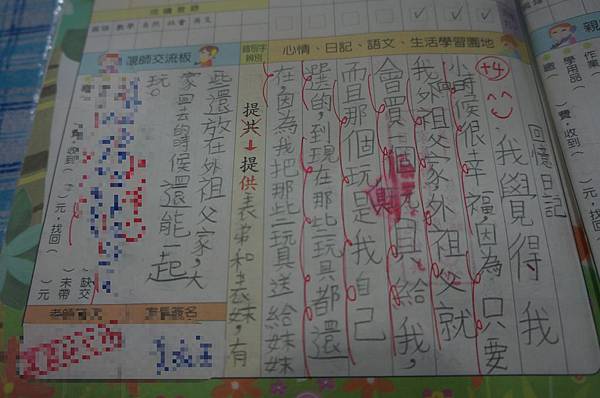 國語 數學 自然 社會 英文
心情、日記、語文、生活學習園地
+4
回憶日記
我覺得我
小時候很幸福,因為只要
我回外祖父家,外祖父就
會買一個玩具給我,
而且那個玩是我自己
選的,到現在那些玩具都還
在,因為我把那些玩具送給妹妹
提共→提供
表弟和表妹,有
些還放在外祖父家,大
家回去的時候還能一起
玩。
師交流板
費,收到(
)元,找回(
)元
缺交
未帶
學用品
作業
費,收到(
)元,找回(